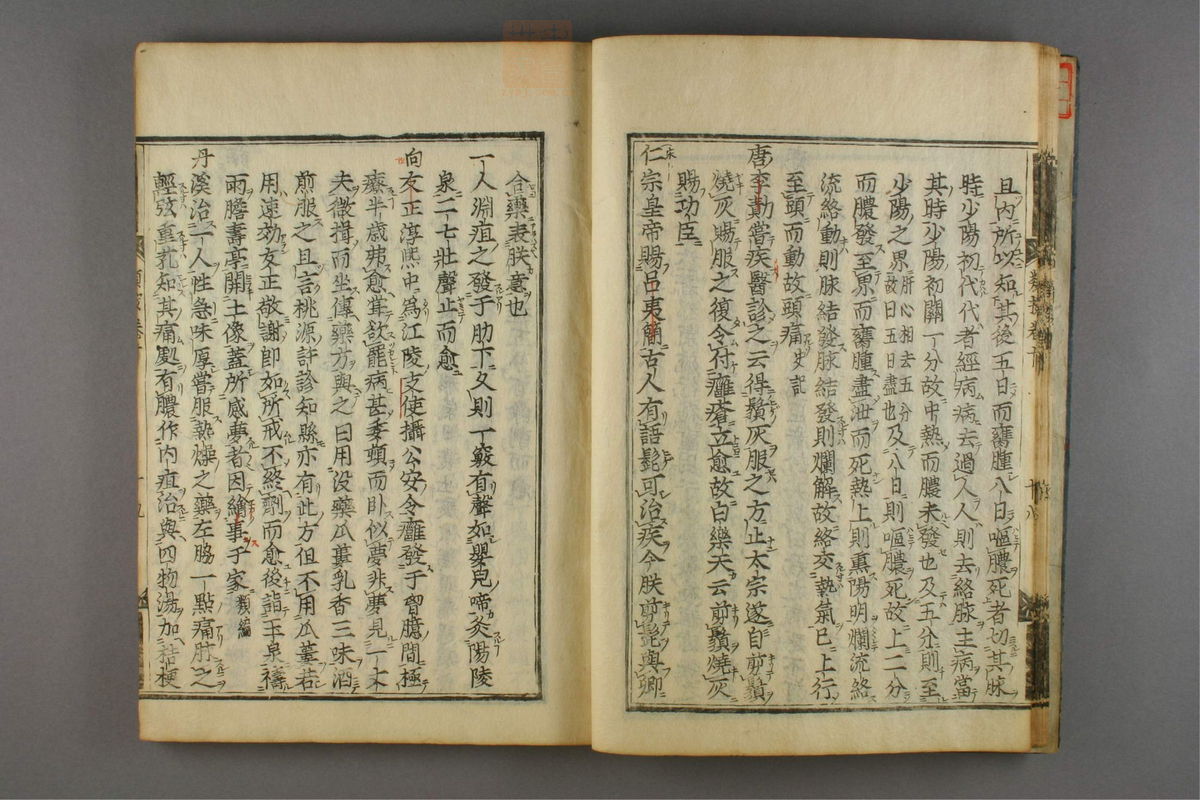 且内所以知其後五日而癰腫八日嘔膿死者切其脉
時少陽初代代者經病病去過人人則去絡脉主病當
其時少陽初關一分故中熱而膿未發也及五分則至
少陽之界肝心相去五分故曰五日盡也及八日則嘔膿死故上二分
而膿發至界而癰腫盡泄而死熱上則熏陽明爛流絡
流絡動則脉結發脉結發則爛解故絡交熱氣已上行
至頭而動故頭痛史記
唐李勣嘗疾醫診之云得鬚灰服之方止太宗遂自剪鬚
燒灰賜服之復令付癰瘡立愈故白樂天云剪鬚燒灰
賜功臣
仁宗皇帝賜呂夷簡古人有語髭可治疾今朕剪髭與卿
合藥表朕意也
一人淵疽之發于肋下久則一竅有聲如嬰兒啼灸陽陵
泉二七壯聲止而愈
向友正淳熙中爲江陵支使攝公安令癰發于胷臆間極
療半歲弗愈嘗欲罷病甚委頓而卧似夢非夢見一丈
夫微揖而坐傳藥方與之曰用没藥瓜蔞乳香三味酒
煎服之且言桃源許診知縣亦有此方但不用瓜蔞若
用速効友正敬謝即如所戒不終劑而愈後詣玉泉禱
雨瞻壽亭關王像蓋所感夢者因繪事于家類編
丹溪治一人性急味厚嘗服熱燥之藥左脇一點痛肘之
輕弦重芤知其痛處有膿作内疽治與四物湯加桔梗